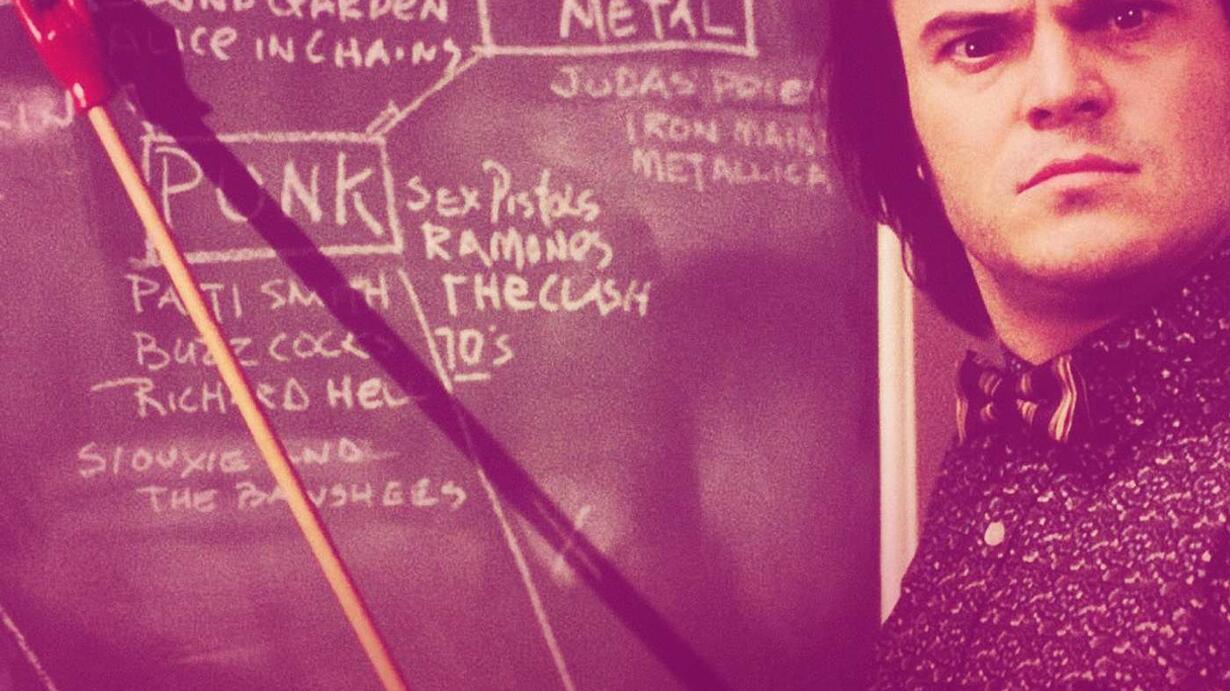 SOUNDGARDEN
ALICE IN CHAINS
METAL
JUDAS PRIE
IRON MAID
METALLICA
PUNK
SEX PISTOLS
RAMONES
THE CLASH
70's
PATTI SMITH
BUZZCOCKS
RICHARD HELL
SIOUXIE AND
THE BANSHEES